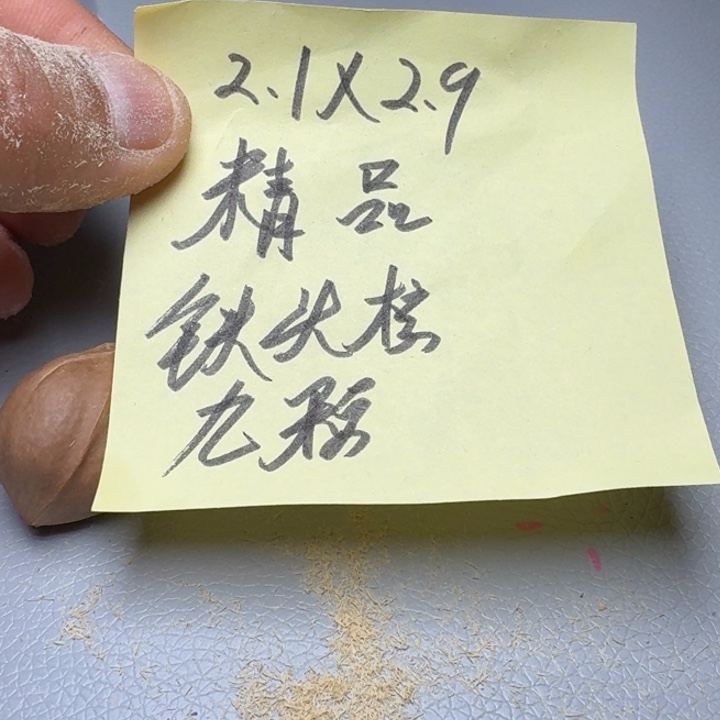 2.1X2.9
精品
铁头核
九颗